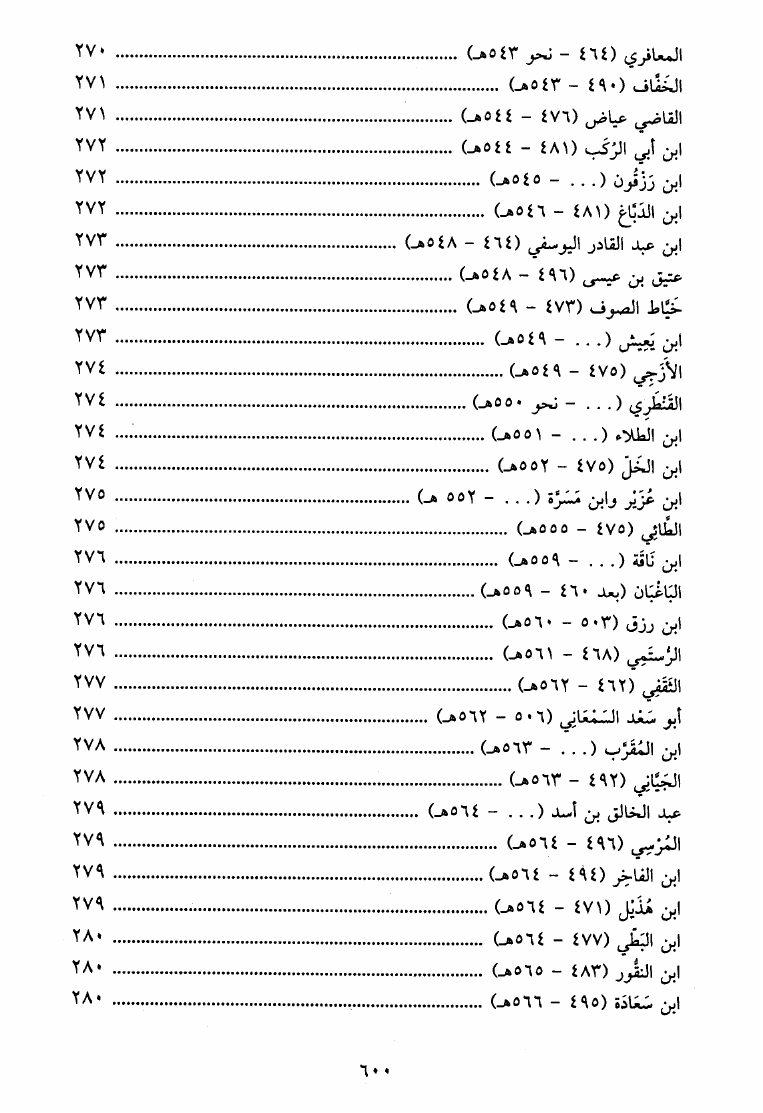 المعافري (٤٦٤ - نحو ٥٤٣هـ) ........ ٢٧٠
الخَفَّاف (٤٩٠ - ٥٤٣هـ) ........ ٢٧١
القاضي عياض (٤٧٦ - ٥٤٤هـ) ........ ٢٧١
ابن أبي الرُكَب (٤٨١ - ٥٤٤هـ) ........ ٢٧٢
ابن رَزْقُون (... - ٥٤٥هـ) ........ ٢٧٢
ابن الدَبَّاغ (٤٨١ - ٥٤٦هـ) ........ ٢٧٢
ابن عبد القادر اليوسفي (٤٦٤ - ٥٤٨هـ) ........ ٢٧٣
عتيق بن عيسى (٤٩٦ - ٥٤٨هـ) ........ ٢٧٣
خَيَّاط الصوف (٤٧٣ - ٥٤٩هـ) ........ ٢٧٣
ابن يَعِيش (... - ٥٤٩هـ) ........ ٢٧٣
الأَزَجِي (٤٧٥ - ٥٤٩هـ) ........ ٢٧٤
القَنْطَرِي (... - نحو ٥٥٠هـ) ........ ٢٧٤
ابن الطلاء (... - ٥٥١هـ) ........ ٢٧٤
ابن الخَلّ (٤٧٥ - ٥٥٢هـ) ........ ٢٧٤
ابن عُزَيْر وابن مَسَرَّة (... - ٥٥٢ هـ) ........ ٢٧٥
الطَّائِي (٤٧٥ - ٥٥٥هـ) ........ ٢٧٥
ابن نَاقَة (... - ٥٥٩هـ) ........ ٢٧٦
البَاغْبَان (بعد ٤٦٠ - ٥٥٩هـ) ........ ٢٧٦
ابن رزق (٥٠٣ - ٥٦٠هـ) ........ ٢٧٦
الرُستَمِي (٤٦٨ - ٥٦١هـ) ........ ٢٧٦
الثَقَفِي (٤٦٢ - ٥٦٢هـ) ........ ٢٧٧
أبو سَعْد السَمْعَاني (٥٠٦ - ٥٦٢هـ) ........ ٢٧٧
ابن المُقَرَّب (... - ٥٦٣هـ) ........ ٢٧٨
الجَيَّانِي (٤٩٢ - ٥٦٣هـ) ........ ٢٧٨
عبد الخالق بن أسد (... - ٥٦٤هـ) ........ ٢٧٩
المُرْسِي (٤٩٦ - ٥٦٤هـ) ........ ٢٧٩
ابن الفاخِر (٤٩٤ - ٥٦٤هـ) ........ ٢٧٩
ابن هُذَيْل (٤٧١ - ٥٦٤هـ) ........ ٢٧٩
ابن البَطّي (٤٧٧ - ٥٦٤هـ) ........ ٢٨٠
ابن النقُّور (٤٨٣ - ٥٦٥هـ) ........ ٢٨٠
ابن سَعَادَة (٤٩٥ - ٥٦٦هـ) ........ ٢٨٠
٦٠٠